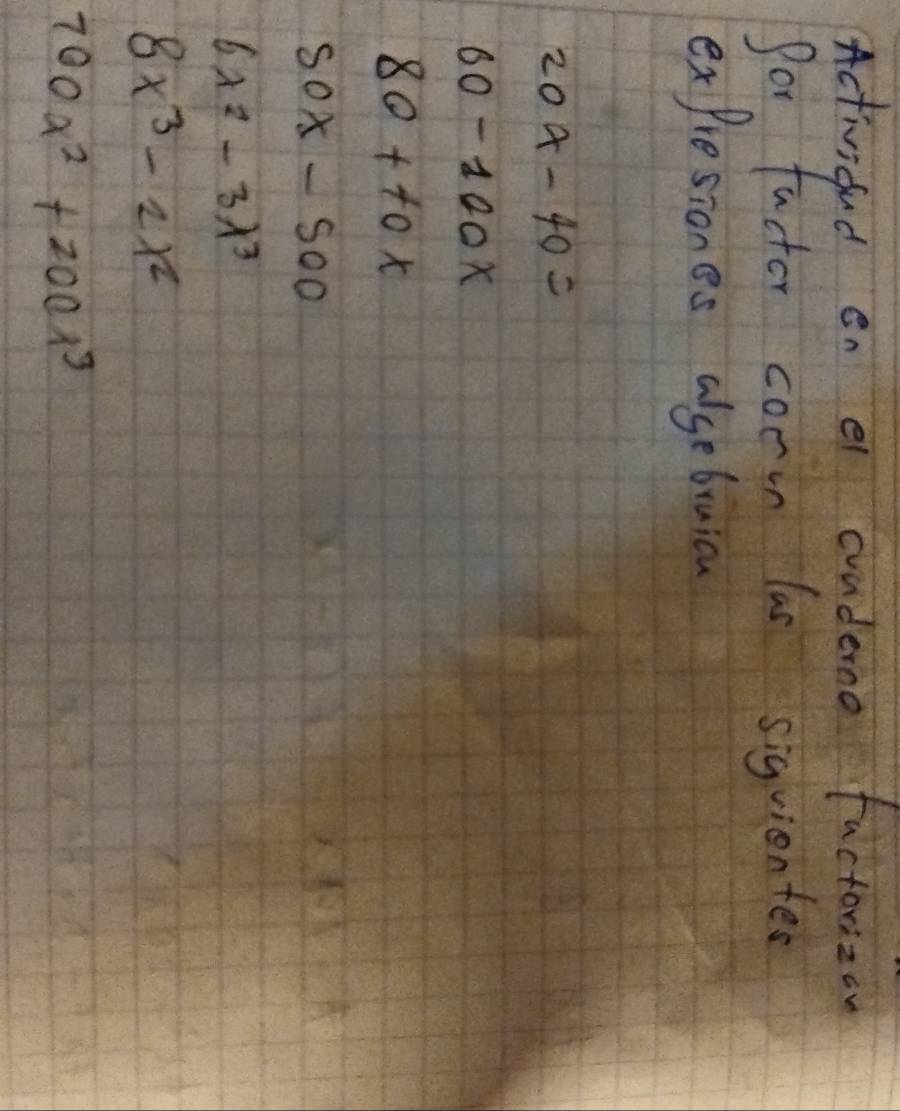 Actividad en el cuaderno factorizar
por factor comun las siguientes
expresiones algebraica
20x - 40=
60 - 100x
80 + 10x
50x - 500
6x² - 3x³
8x³ - 2x²
100x² + 200x³